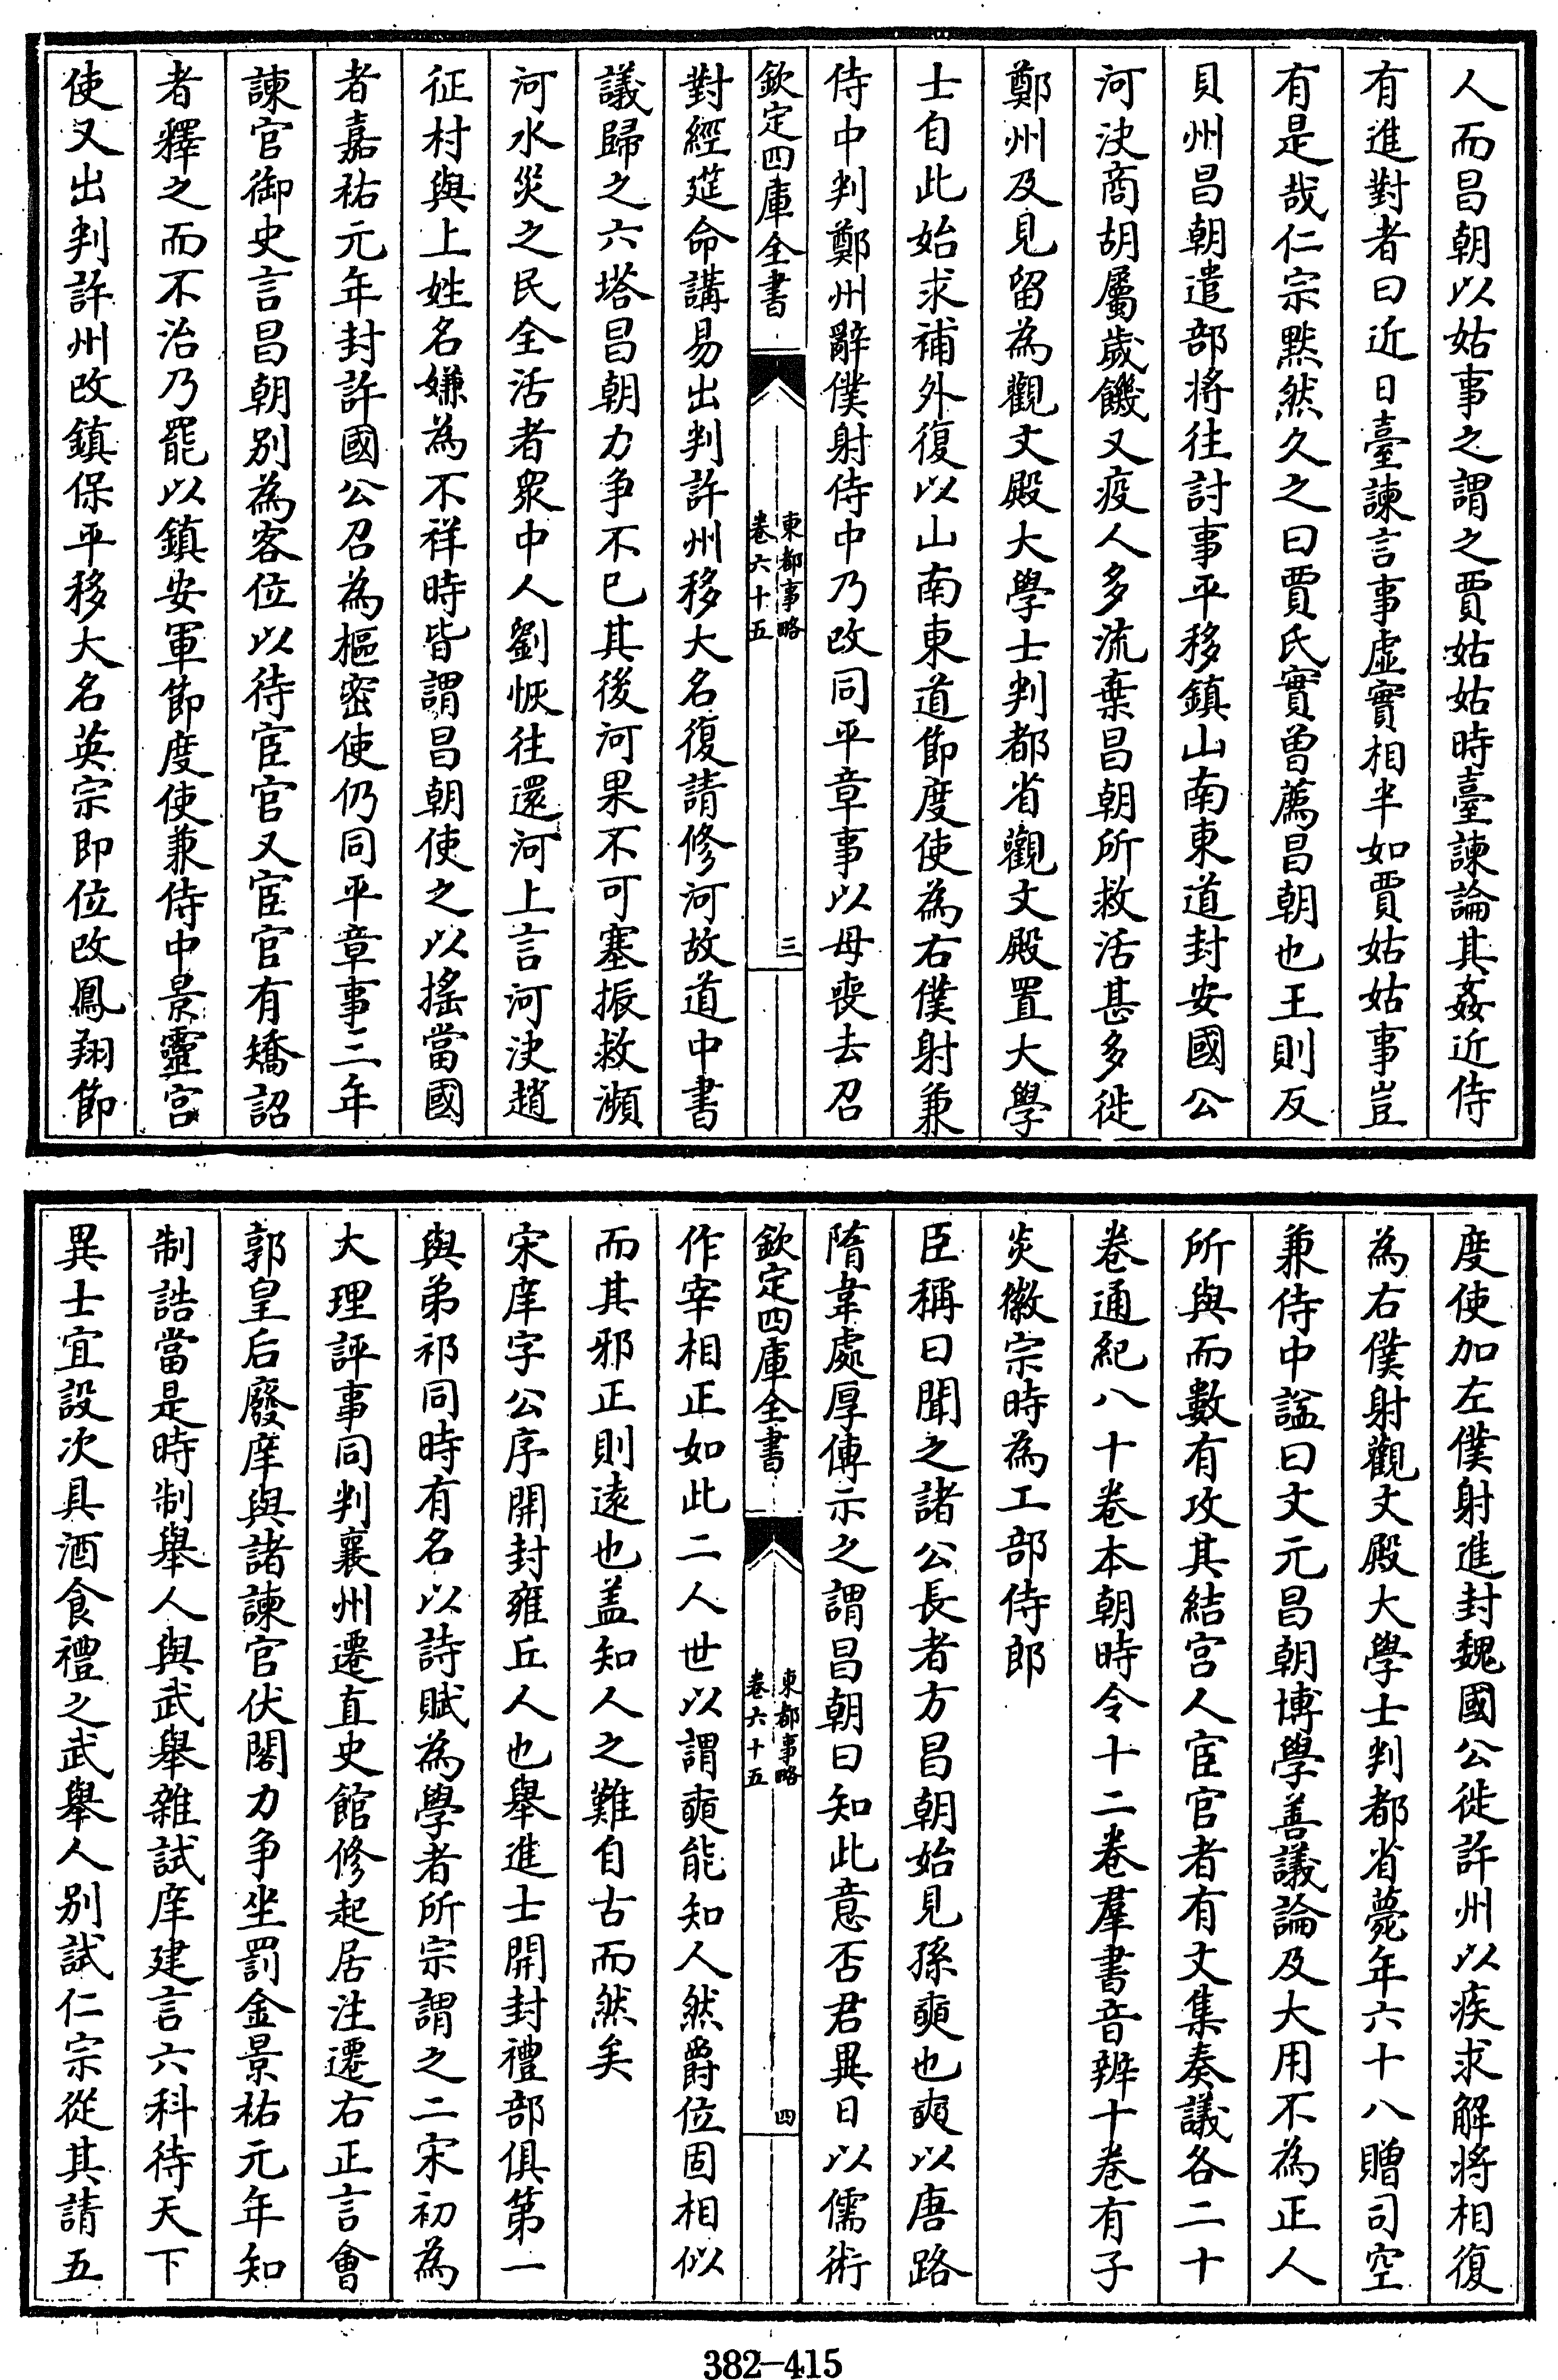 人而昌朝以姑事之謂之賈姑姑時臺諫論其姦近侍
有進對者曰近日臺諫言事虛實相半如賈姑姑事豈
有是哉仁宗黙然久之曰賈氏實曽薦昌朝也王則反
貝州昌朝遣部將往討事平移鎮山南東道封安國公
河決商胡屬歲饑又疫人多流棄昌朝所救活甚多徙
鄭州及見留為觀文殿大學士判都省觀文殿置大學
士自此始求補外復以山南東道節度使為右僕射兼
侍中判鄭州辭僕射侍中乃改同平章事以母喪去召
欽定四庫全書
東都事略
卷六十五
三
對經筵命講易出判許州移大名復請修河故道中書
議歸之六塔昌朝力争不已其後河果不可塞振救瀕
河水災之民全活者衆中人劉恢往還河上言河決趙
征村與上姓名嫌為不祥時皆謂昌朝使之以搖當國
者嘉祐元年封許國公召為樞密使仍同平章事三年
諫官御史言昌朝别為客位以待宦官又宦官有矯詔
者釋之而不治乃罷以鎮安軍節度使兼侍中景靈宫
使又出判許州改鎮保平移大名英宗即位改鳳翔節
度使加左僕射進封魏國公徙許州以疾求解將相復
為右僕射觀文殿大學士判都省薨年六十八贈司空
兼侍中諡曰文元昌朝博學善議論及大用不為正人
所與而數有攻其結宫人宦官者有文集奏議各二十
卷通紀八十卷本朝時令十二卷羣書音辨十卷有子
炎徽宗時為工部侍郎
臣稱曰聞之諸公長者方昌朝始見孫奭也奭以唐路
隋韋處厚傳示之謂昌朝曰知此意否君異日以儒術
欽定四庫全書
東都事略
卷六十五
四
作宰相正如此二人世以謂奭能知人然爵位固相似
而其邪正則逺也盖知人之難自古而然矣
宋庠字公序開封雍丘人也舉進士開封禮部俱第一
與弟祁同時有名以詩賦為學者所宗謂之二宋初為
大理評事同判襄州遷直史館修起居注遷右正言會
郭皇后廢庠與諸諫官伏閤力争坐罰金景祐元年知
制誥當是時制舉人與武舉雜試庠建言六科待天下
異士宜設次具酒食禮之武舉人别試仁宗從其請五
382-415